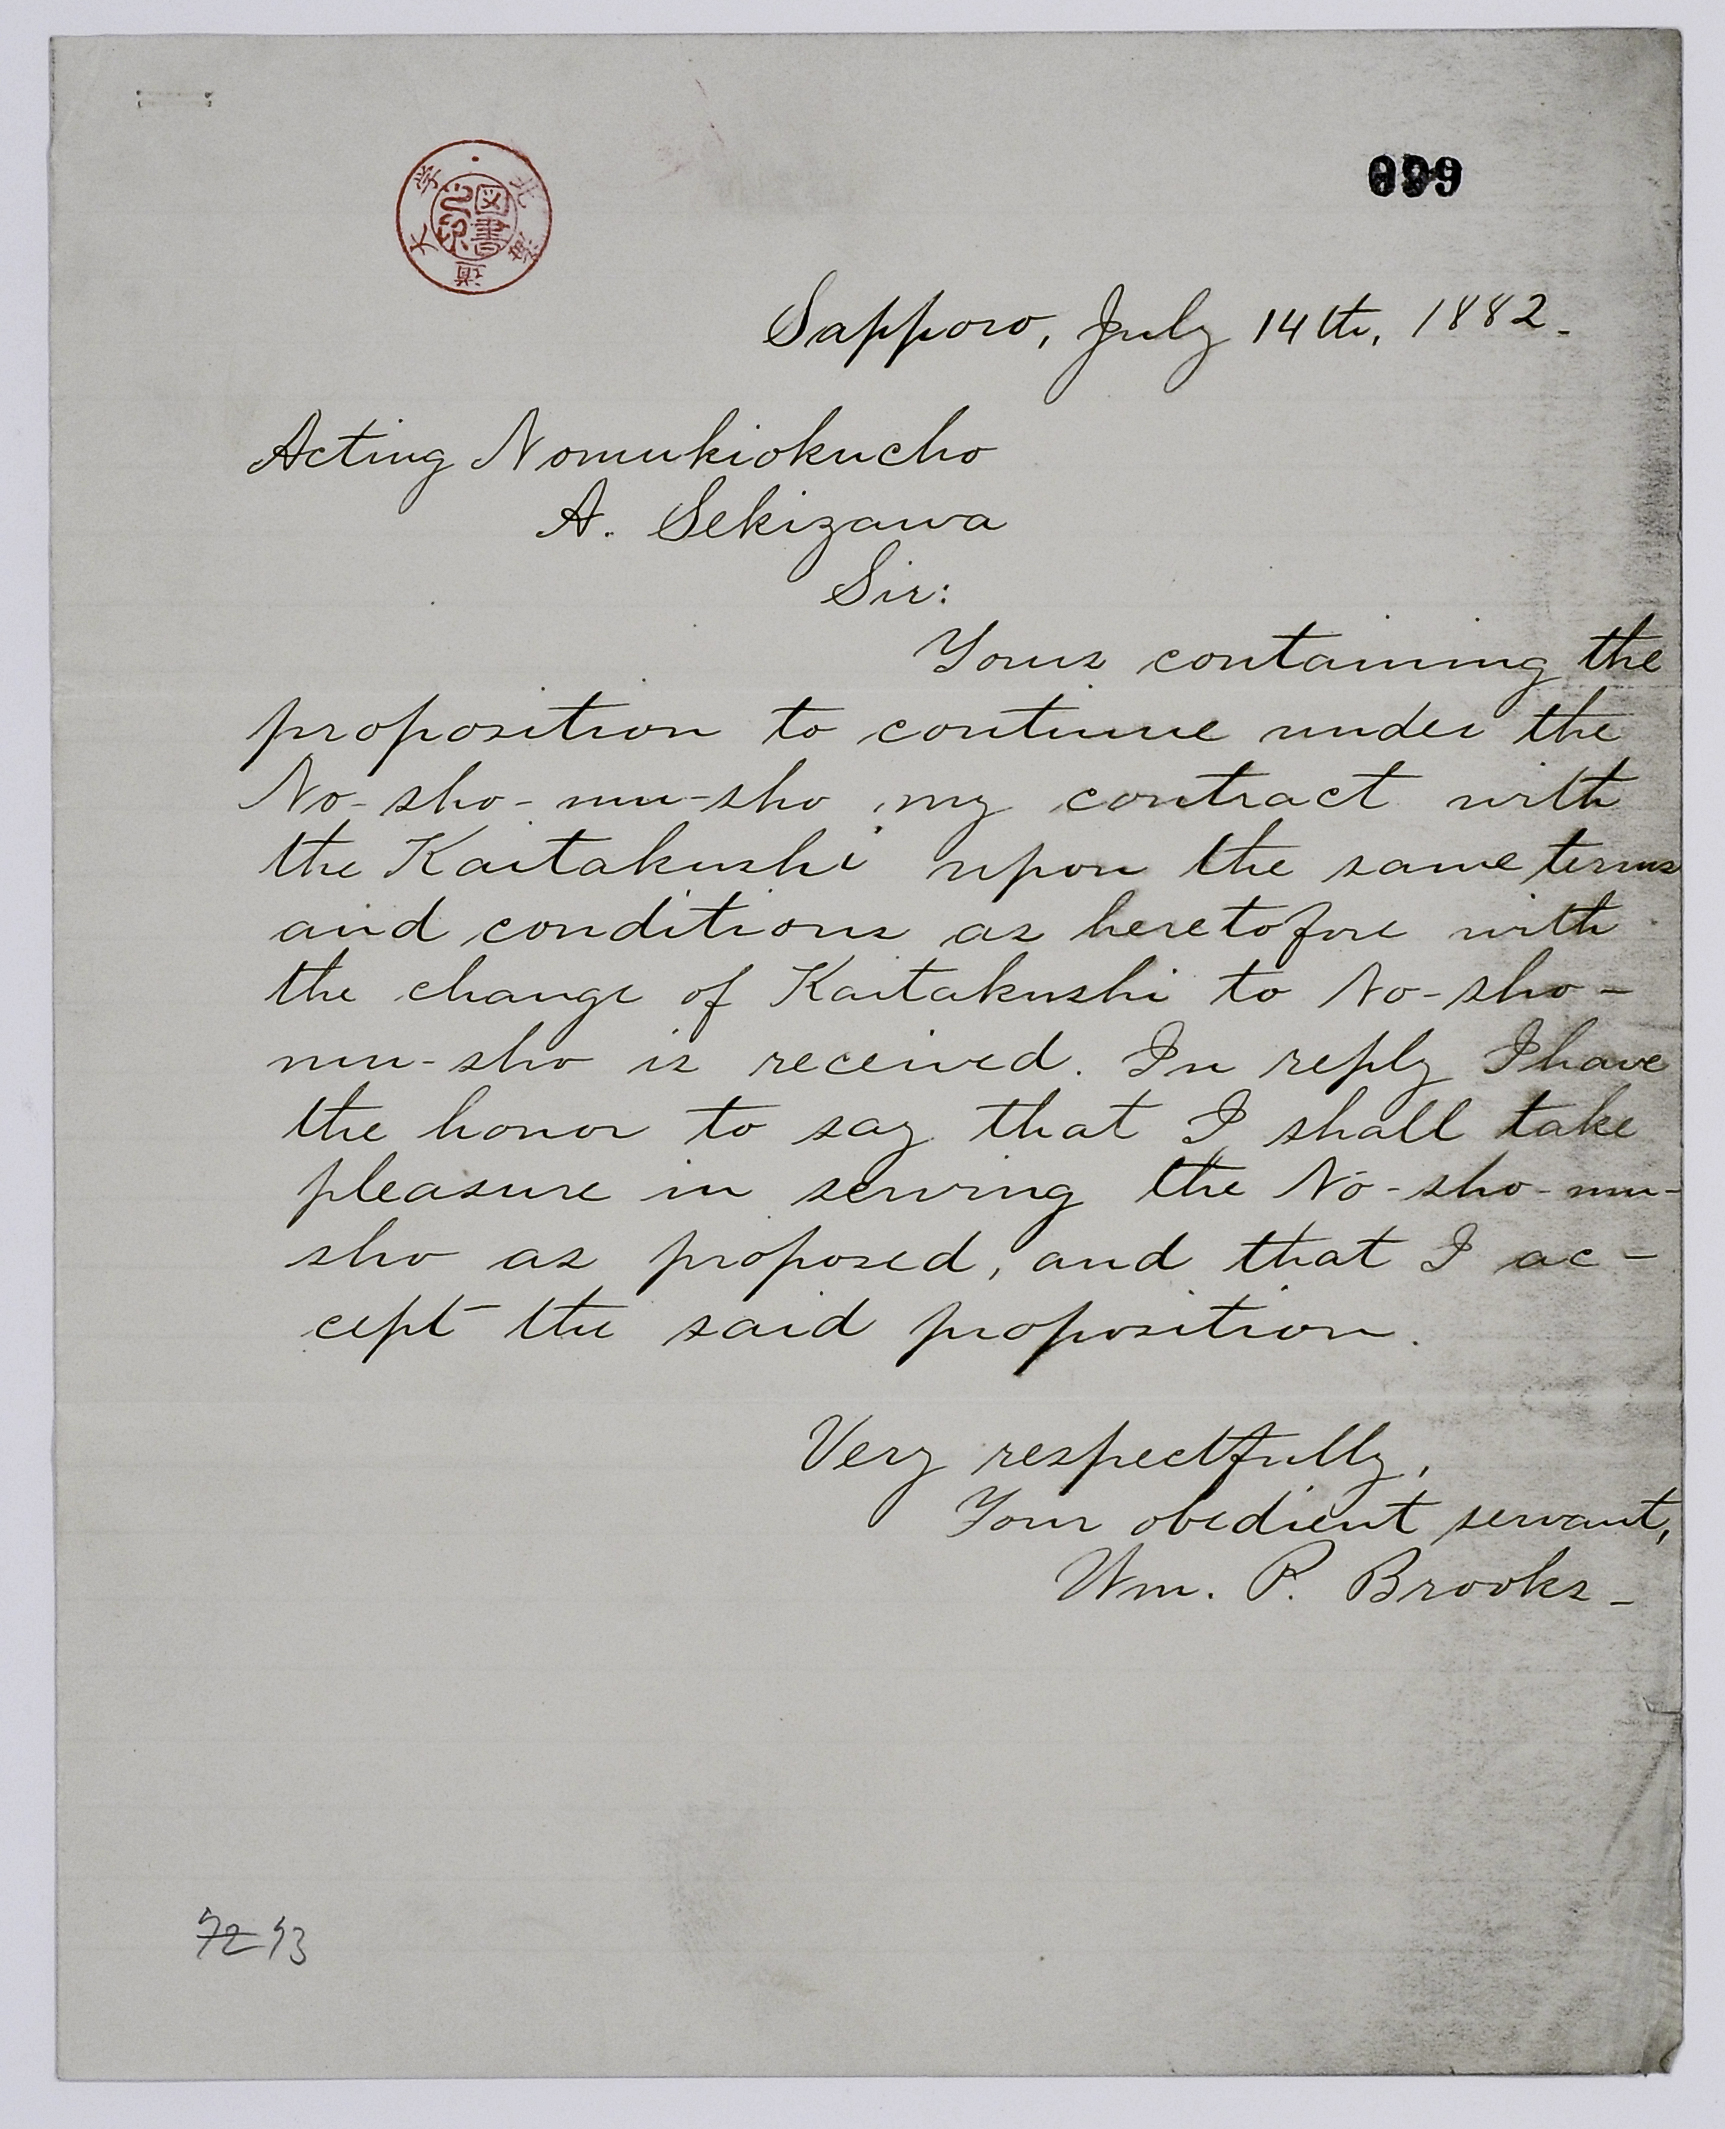 099
北海道大学
図書之印
Sapporo, July 14th, 1882.
Acting Nomukiokucho
A. Sekizawa
Sir:
Yours containing the
proposition to continue under the
No-sho-mu-sho my contract with
the Kaitakushi upon the same terms
and conditions as heretofore with
the change of Kaitakushi to No-sho-
mu-sho is received. In reply I have
the honor to say that I shall take
pleasure in serving the No-sho-mu-
sho as proposed, and that I ac-
cept the said proposition.
Very respectfully,
Your obedient servant,
Wm. P. Brooks
72 73